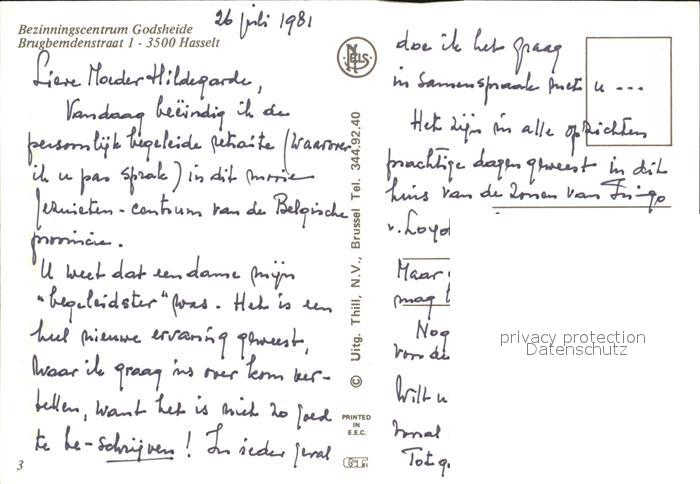 26 juli 1981
Bezinningscentrum Godsheide
Brugbemdenstraat 1 - 3500 Hasselt
Lieve Moeder Hildegarde,
Vandaag beëindig ik de
persoonlijk begeleide retraite (waarover
ik u pas sprak) in dit mooie
Jezuïeten-centrum van de Belgische
provincie.
U weet dat een dame mijn
"begeleidster" was. Het is een
heel nieuwe ervaring geweest,
waar ik graag ins over kom ver-
tellen, want het is niet zo goed
te be-schrijven! In ieder geval
3
NELS
© Uitg. Thill, N.V., Brussel Tel. 344.92.40
PRINTED
IN
E.E.C.
doe ik het graag
in samenspraak met u ...
Het zijn in alle opzichten
prachtige dagen geweest in dit
huis van de zonen van Inigo
v. Loyol
Maar
mag
Nog
voor de
Wilt u
Tot g
privacy protection
Datenschutz